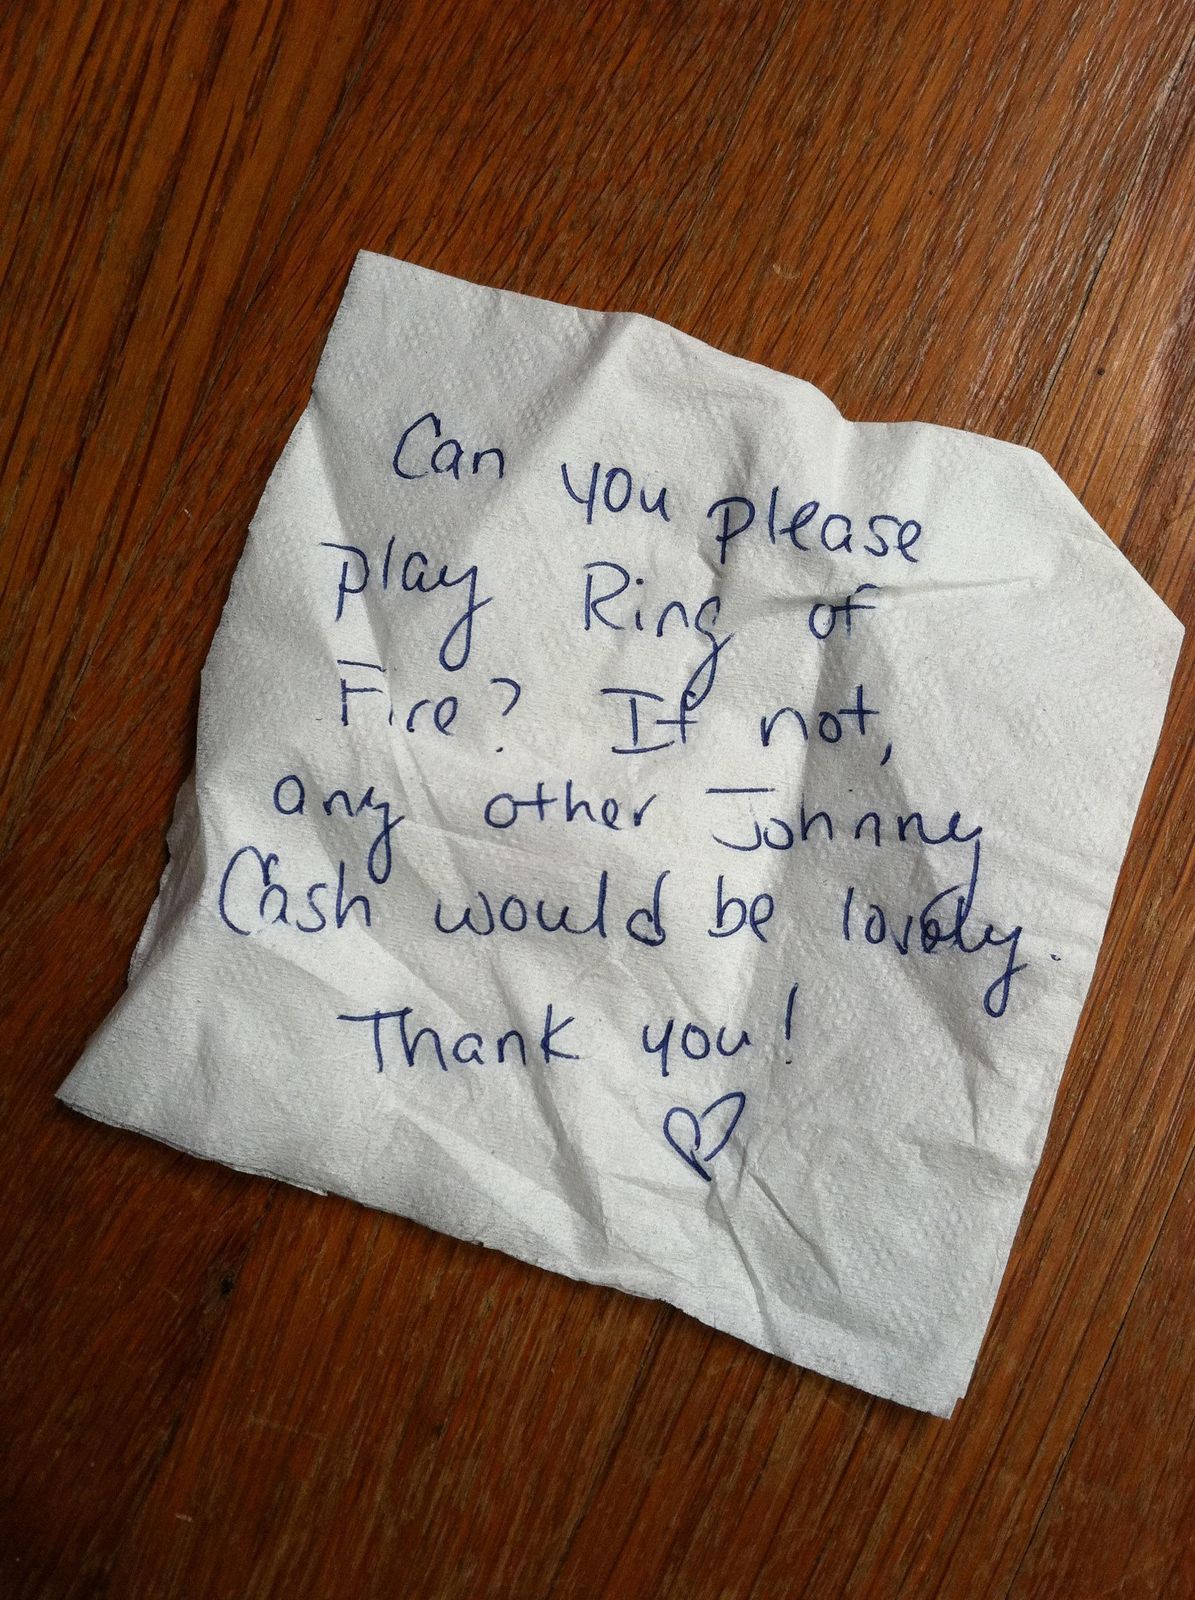 Can you please
play Ring of
Fire? If not,
any other Johnny
Cash would be lovely.
Thank you!
♡